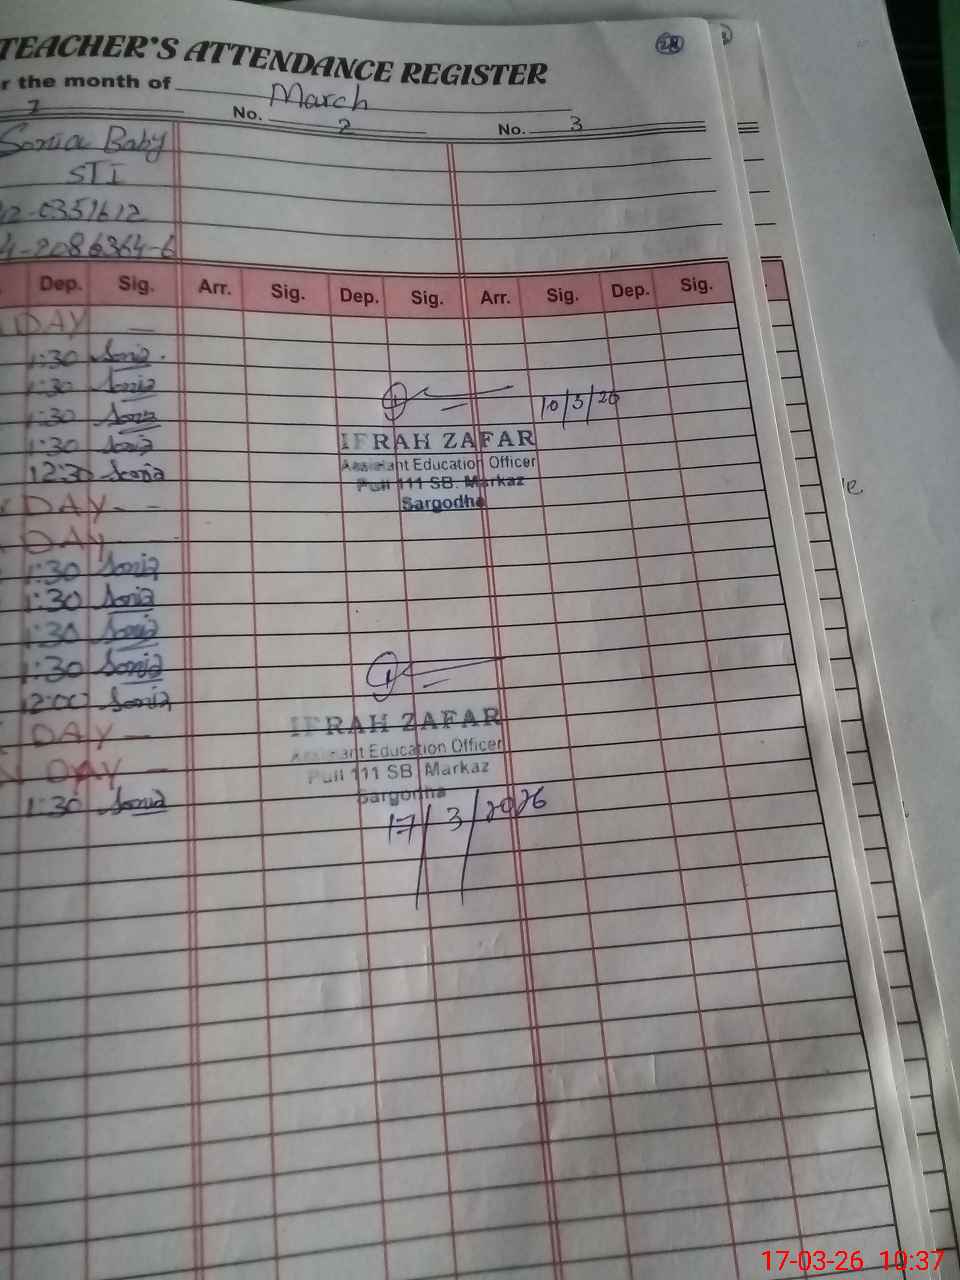 TEACHER'S ATTENDANCE REGISTER
28
r the month of March
1 No. 2 No. 3
Sonia Baby
STI
12-0351612
4-2086364-6
Dep. Sig. Arr. Sig. Dep. Sig. Arr. Sig. Dep. Sig.
DAY —
1:30 Sonia
1:30 Sonia
1:30 Sonia
10/3/26
1:30 Sonia
IFRAH ZAFAR
12:30 Sonia
Assistant Education Officer
Pull 111 SB. Markaz
Sargodha
DAY - -
DAY —
1:30 Sonia
1:30 Sonia
1:30 Sonia
1:30 Sonia
12:00 Sonia
IFRAH ZAFAR
DAY —
Assistant Education Officer
Pull 111 SB. Markaz
DAY —
Sargodha
1:30 Sonia
17/3/2026
17-03-26 10:37